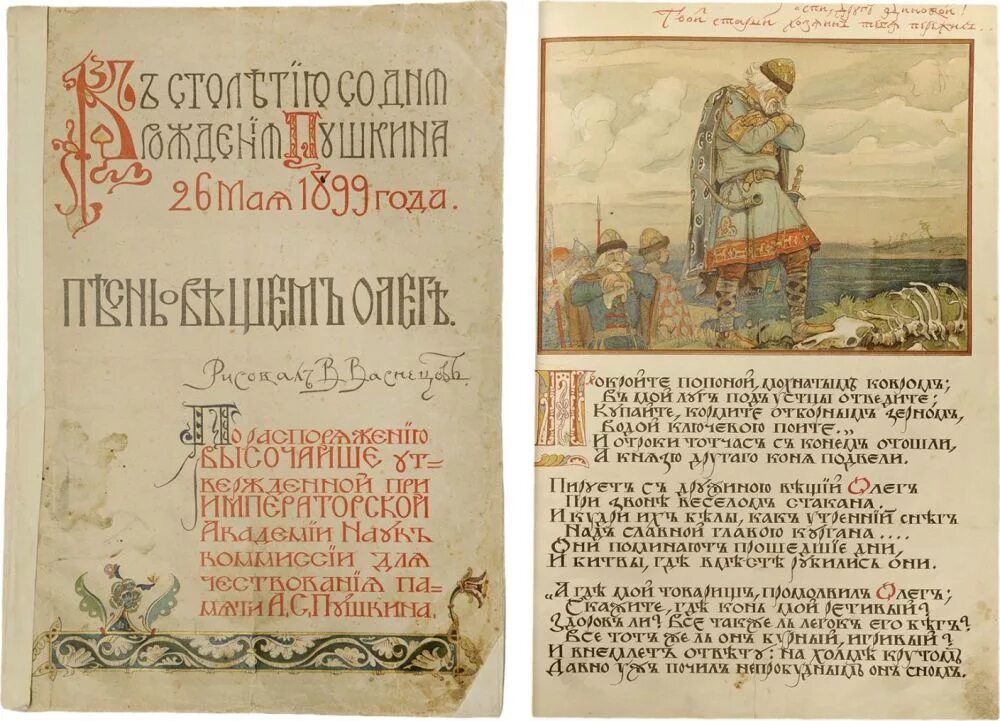 Въ столѣтію со дня
рожденія Пушкина
26 Мая 1899 года.
Пѣснь о вѣщемъ Олегѣ.
Рисовалъ В. Васнецовъ.
По распоряженію
Высочайше ут-
вержденной при
Императорской
Академіи Наукъ
коммиссіи для
чествованія па-
мяти А.С. Пушкина.
"Спи, другъ одинокой!
Твой старый хозяинъ тебя пережилъ..
Покройте попоной, мохнатымъ ковромъ;
Въ мой лугъ подъ устцы отведите;
Купайте, кормите отборнымъ зерномъ,
Водой ключевою поите..„
И отроки тотчасъ съ конемъ отошли,
А князю другаго коня подвели.
Пируетъ съ дружиною вѣщій Олегъ
При звонѣ веселомъ стакана.
И кудри ихъ бѣлы, какъ утренній снѣгъ
Надъ славной главою кургана....
Они поминаютъ прошедшіе дни,
И битвы, гдѣ вмѣстѣ рубились они.
„А гдѣ мой товарищъ, промолвилъ Олегъ;
Скажите, гдѣ конь мой ретивый?
Здоровъ ли? Все также ль легокъ его бѣгъ?
Все тотъ же ль онъ бурный, игривый?
И внемлетъ отвѣту: на холмѣ крутомъ
Давно ужъ почилъ непробуднымъ онъ сномъ.